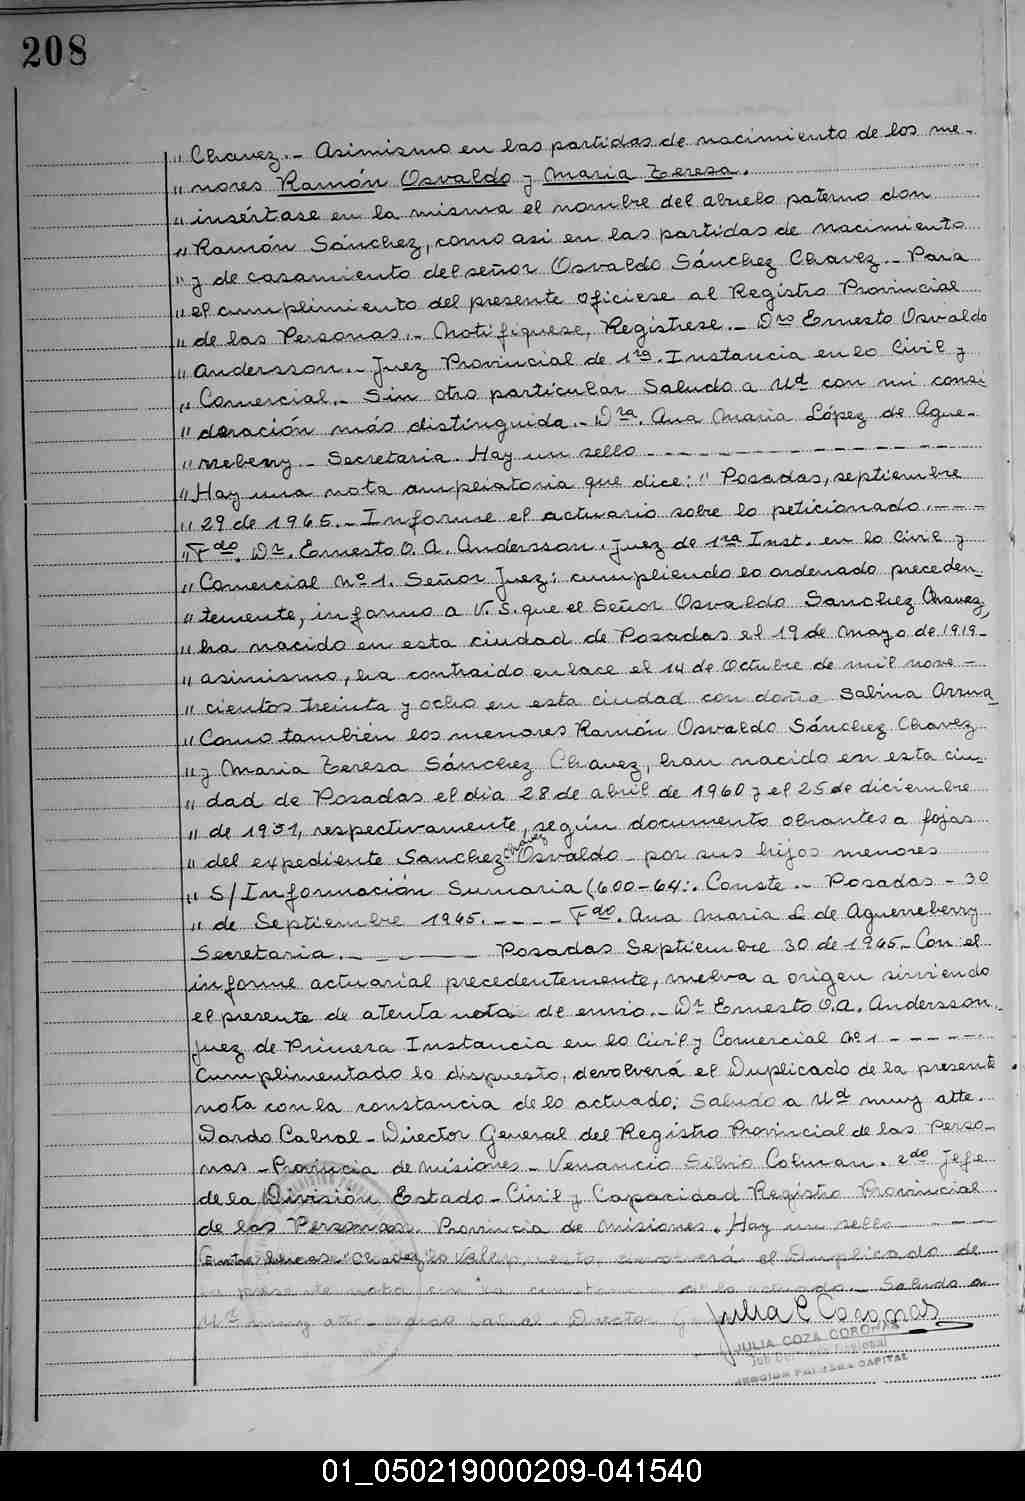 208
" Chavez.- Asimismo en las partidas de nacimiento de los me-
" nores Ramón Osvaldo y Maria Teresa.
" insértase en la misma el nombre del abuelo paterno don
" Ramón Sánchez, como asi en las partidas de nacimiento
" y de casamiento del señor Osvaldo Sánchez Chavez.- Para
" el cumplimiento del presente oficiese al Registro Provincial
" de las Personas.- Notifiquese, Registrese.- Dro Ernesto Osvaldo
" Andersson.- Juez Provincial de 1ra. Instancia en lo Civil y
" Comercial.- Sin otro particular Saludo a Ud con mi consi
" deración más distinguida.- Dra. Ana Maria López de Ague-
" rreberry.- Secretaria. Hay un sello - - - - - - - - - - - -
" Hay una nota ampliatoria que dice: " Posadas, septiembre
" 29 de 1965.- Informe el actuario sobre lo peticionado.- - - -
" Fdo. Dr. Ernesto O. A. Andersson. Juez de 1ra Inst. en lo Civil y
" Comercial No 1. Señor Juez: cumpliendo lo ordenado preceden-
" temente, informo a V.S. que el Señor Osvaldo Sanchez Chavez,
" ha nacido en esta ciudad de Posadas el 19 de mayo de 1919-
" asimismo, ha contraido enlace el 14 de Octubre de mil nove-
" cientos treinta y ocho en esta ciudad con doña Sabina Arrua
" Como también los menores Ramón Osvaldo Sánchez Chavez
" y Maria Teresa Sánchez Chavez, han nacido en esta ciu-
" dad de Posadas el dia 28 de abril de 1960 y el 25 de diciembre
" de 1951, respectivamente, según documento obrantes a fojas
" del expediente Sanchez Chavez Osvaldo - por sus hijos menores
" S/ Información Sumaria (600-64:. Conste.- Posadas - 30
" de Septiembre 1965.- - - - Fdo. Ana Maria L de Aguerreberry
Secretaria.- - - - - - Posadas Septiembre 30 de 1965.- Con el
informe actuarial precedentemente, vuelva a origen sirviendo
el presente de atenta nota de envio.- Dr Ernesto O.A. Andersson.
Juez de Primera Instancia en lo Civil y Comercial No 1 - - - - - -
Cumplimentado lo dispuesto, devolverá el Duplicado de la presente
nota con la constancia de lo actuado: Saludo a Ud muy atte.
Dardo Cabral - Director General del Registro Provincial de las Perso-
nas - Provincia de Misiones - Venancio Silvio Colman. 2do Jefe
de la División Estado - Civil y Capacidad Registro Provincial
de las Personas. Provincia de Misiones. Hay un sello - - - -
Entre lineas: "Chavez" Vale el Duplicado de
la presente nota con la constancia de lo actuado.- Saludo a
Ud muy atte - Dardo Cabral - Director
Julia C Coronas
JULIA COZA CORONAS
CAPITAL
01_050219000209-041540